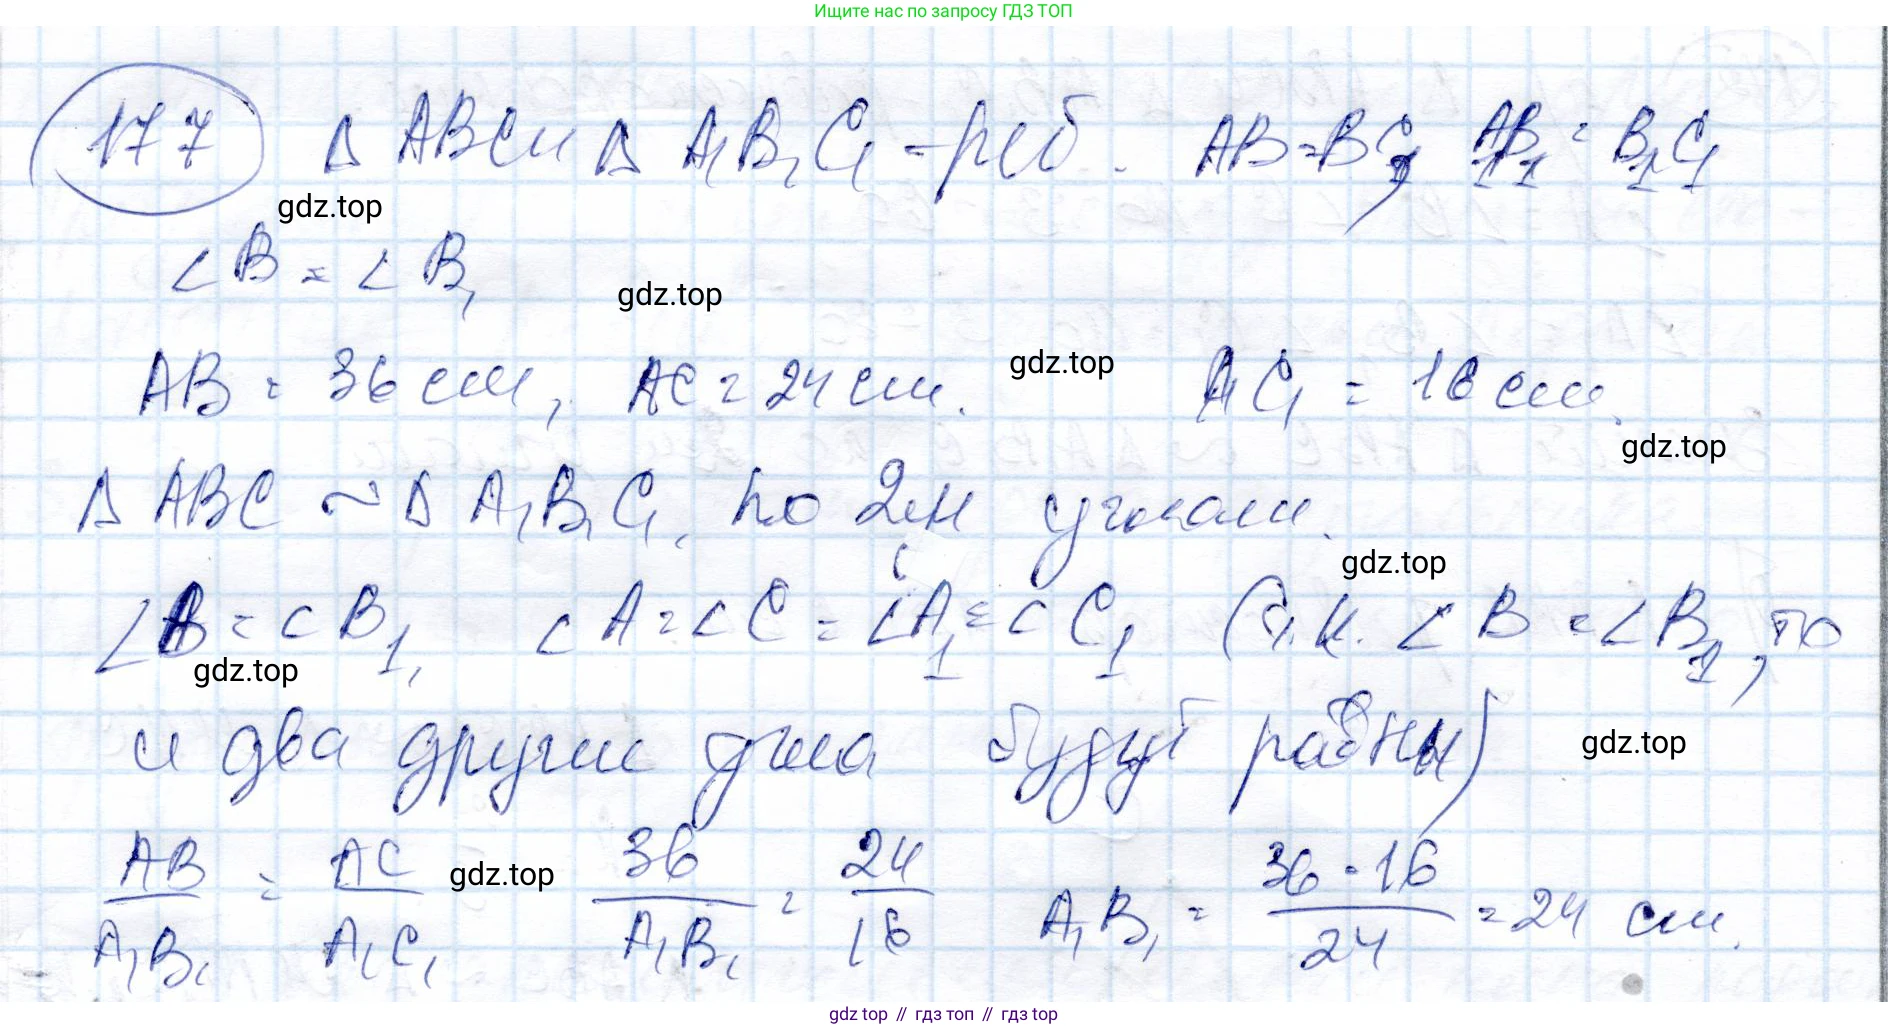 Ищите нас по запросу ГДЗ ТОП
177 Δ ABC и Δ A₁B₁C₁ - р/б. AB = BC, A₁B₁ = B₁C₁
gdz.top
∠B = ∠B₁
gdz.top
AB = 36 см, AC = 24 см. gdz.top A₁C₁ = 16 см.
gdz.top
Δ ABC ~ Δ A₁B₁C₁ по 2м углам.
gdz.top
∠B = ∠B₁, ∠A = ∠C = ∠A₁ = ∠C₁ (т.к. ∠B = ∠B₁, то
gdz.top
и два другие угла будут равны) gdz.top
AB/A₁B₁ = AC/A₁C₁ gdz.top 36/A₁B₁ = 24/16 A₁B₁ = 36·16/24 = 24 см.
gdz top // гдз топ // гдз top